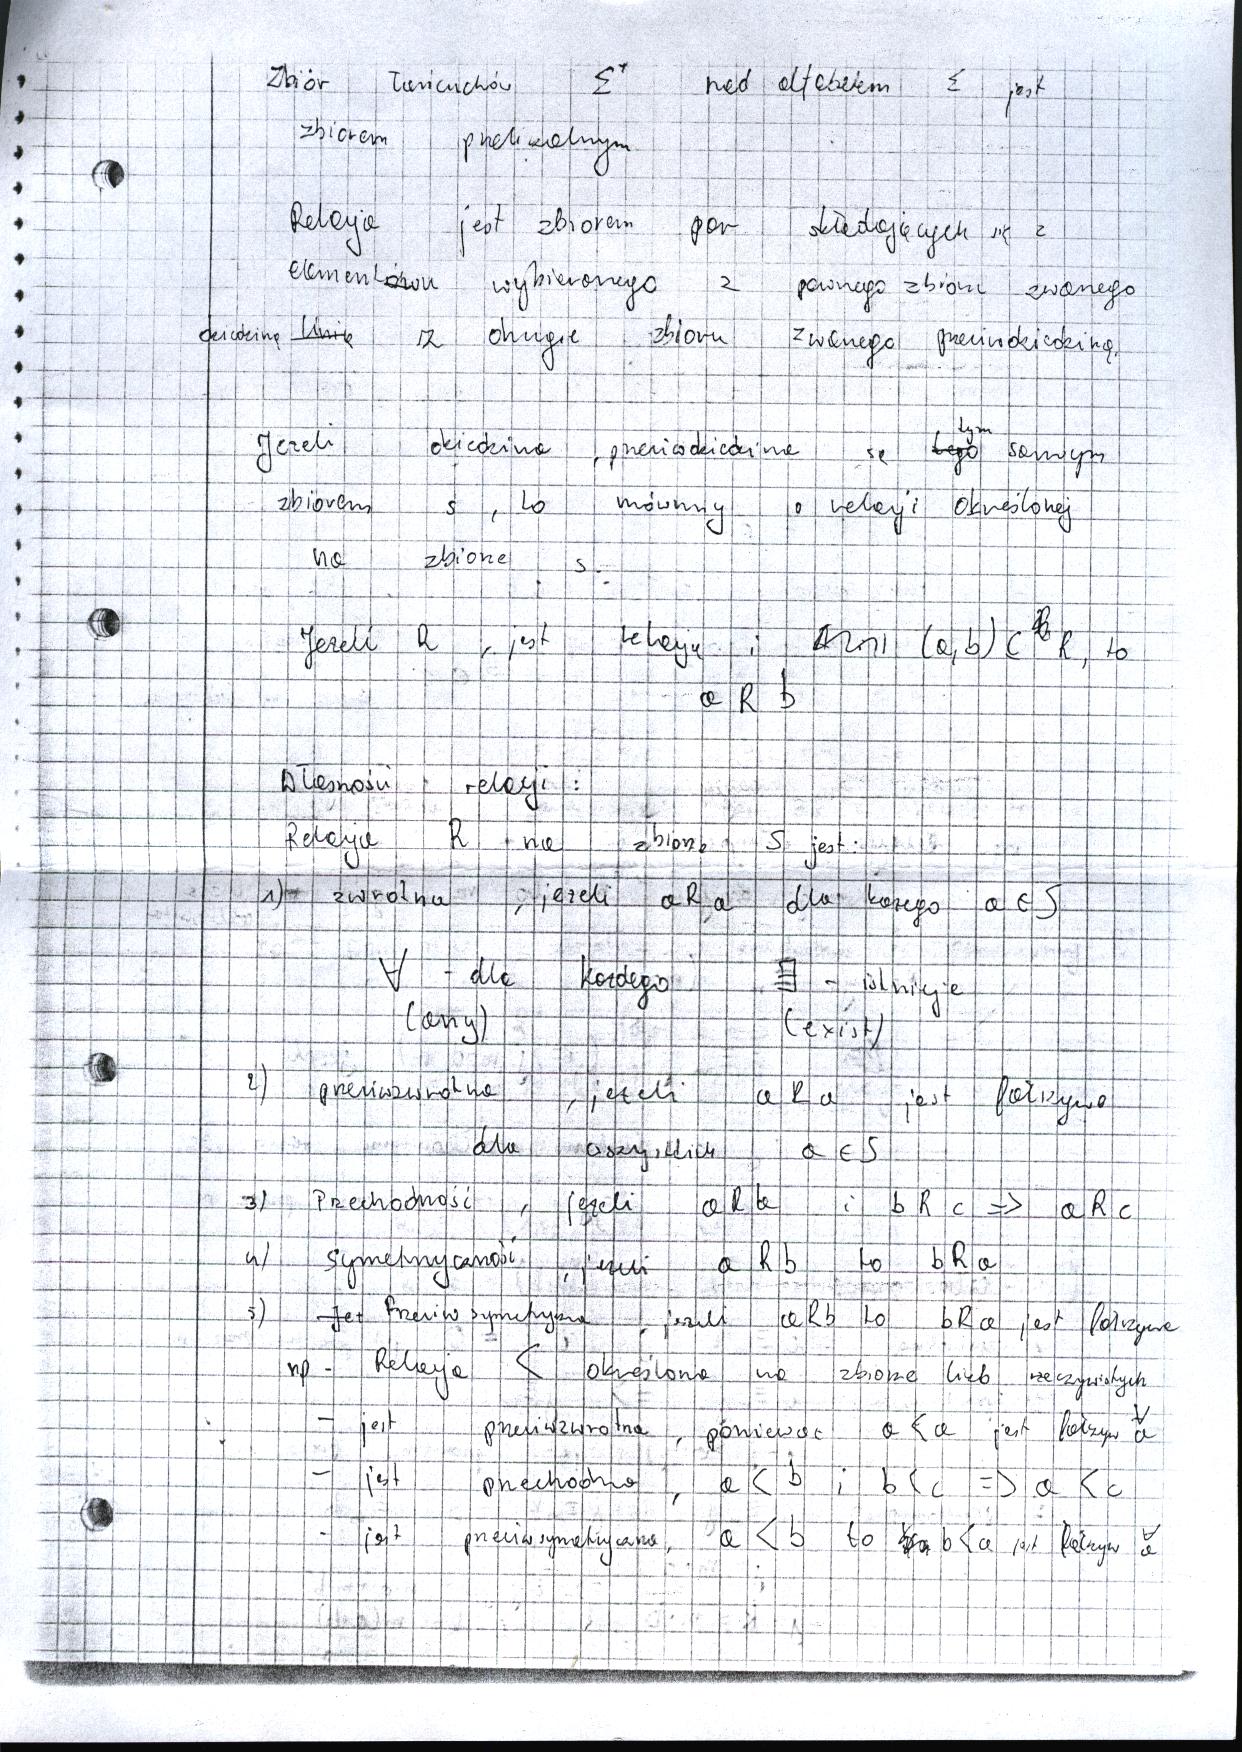 Zbiór łańcuchów Σ* nad alfabetem Σ jest
zbiorem przeliczalnym
Relacja jest zbiorem par składających się z
elementów wybieranego z pewnego zbioru zwanego
dziedziną i z drugie zbioru zwanego przeciwdziedziną.
Jeżeli dziedzina, przeciwdziedzina są tym samym
zbiorem S, to mówimy o relacji określonej
na zbiorze S.
Jeżeli R, jest relacją i (a,b) ⊂ R, to
a R b
Własności relacji:
Relacja R na zbiorze S jest:
1) zwrotna, jeżeli aRa dla kazego a ∈ S
∀ - dla kazdego ∃ - istnieje
(any) (exist)
2) przeciwzwrotna, jeżeli aRa jest fałszywe
dla wszystkich a ∈ S
3) Przechodność, jeżeli aRb i bRc => aRc
4) Symetryczność, jeżeli aRb to bRa
5) Jet Przeciwsymetryczna, jezeli aRb to bRa jest fałszywe
np - Relacja < określona na zbiorze liczb rzeczywistych
- jest przeciwzwrotna, ponieważ a<a jest fałszyw ∀ a
- jest przechodna, a<b i b<c => a<c
- jest przeciwsymetryczna, a<b to b<a jest fałszyw ∀ a